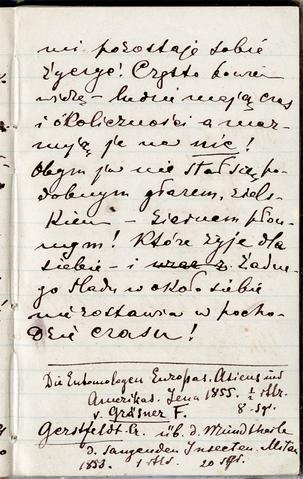 mi pozostaje sobie
życzyć! Często bowiem
widzę – ludzie mają czas
i okoliczności a mar-
nują je na nic!
Obym ja nie stał się po-
dobnym głazem, ziels-
kiem – ziarnem płon-
nym! Które żyje dla
siebie – i żadne-
go śladu w około siebie
nie zostawia w pocho-
dzie czasu!
Die Entomologen Europas. Asiens und
Amerikas. Jena 1855. 2 Abz.
v. Gräsner F. 8 sgr.
Gerstfeldt G. üb. d. Mundtheile
d. saugenden Insecten. Mitau
1853. 1 20 sgr.